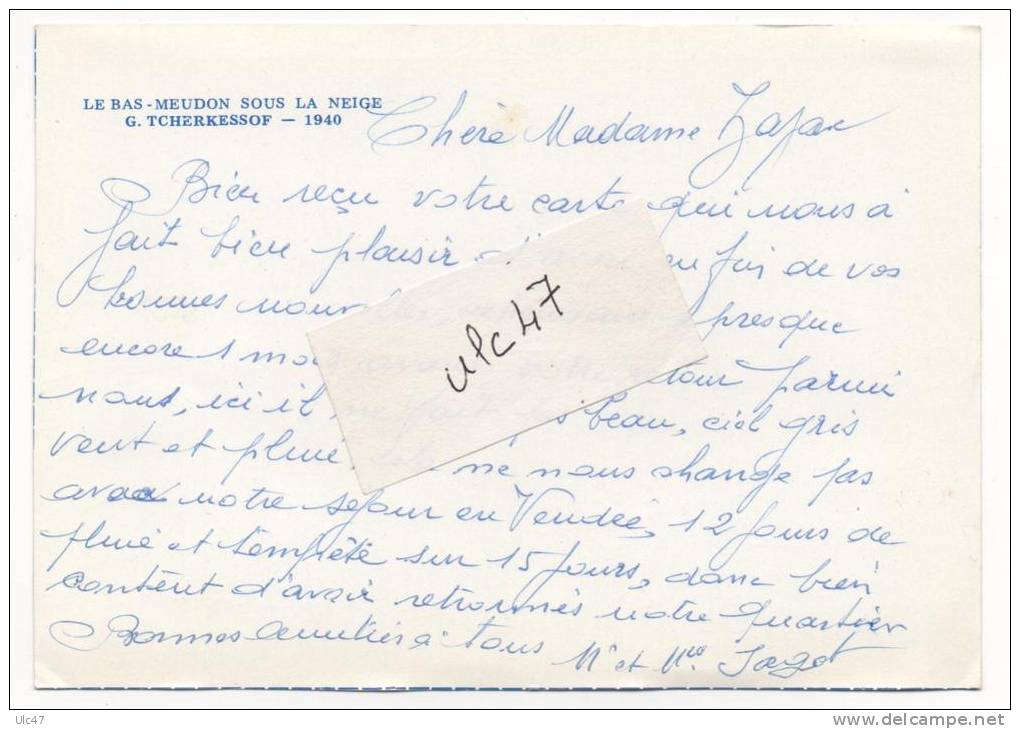 LE BAS-MEUDON SOUS LA NEIGE
G. TCHERKESSOF — 1940
Chère Madame
Bien reçu votre carte qui nous à
fait bien plaisir de vos
bonnes presque
encore 1 parmi
nous, ici il beau, ciel gris
vent et pluie, ne nous change pas
avec notre séjour en Vendée, 12 jours de
pluie et tempête sur 15 jours, donc bien
content d'avoir retrouvés notre quartier
Bonnes amitiés à tous
Mr et Mme
ulc47
Ulc47
www.delcampe.net